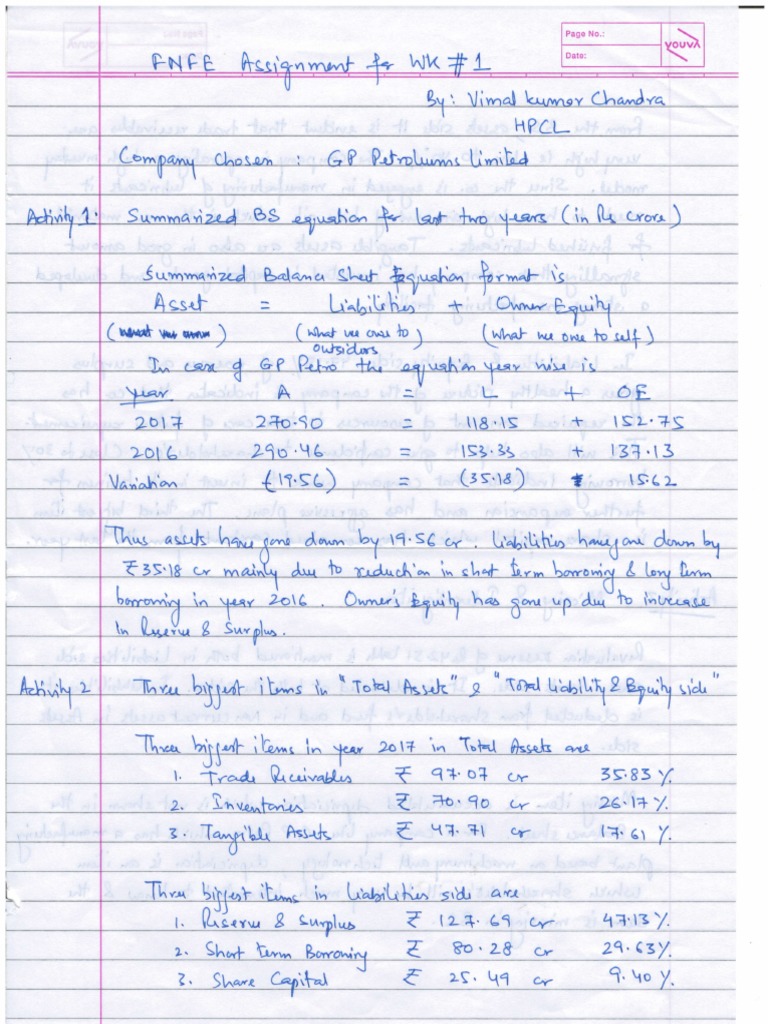 Page No.:
Date:
youva
FNFE Assignment for WK #1
By: Vimal kumar Chandra
HPCL
Company Chosen : GP Petroliums Limited
Activity 1: Summarized BS equation for last two years (in Rs Crore)
Summarized Balance Sheet Equation format is
Asset = Liabilities + Owner Equity
( ) (what we owe to outsiders) (what we owe to self)
In case of GP Petro the equation year wise is
year A = L + OE
2017 270.90 = 118.15 + 152.75
2016 290.46 = 153.33 + 137.13
Variation (19.56) = (35.18) 15.62
Thus assets have gone down by 19.56 cr. Liabilities have gone down by
₹35.18 cr mainly due to reduction in short term borrowing & long term
borrowing in year 2016. Owner's Equity has gone up due to increase
in Reserve & Surplus.
Activity 2 Three biggest items in "Total Assets" & "Total Liability & Equity side"
Three biggest items in year 2017 in Total Assets are
1. Trade Receivables ₹ 97.07 cr 35.83 %
2. Inventories ₹ 70.90 cr 26.17 %
3. Tangible Assets ₹ 47.71 cr 17.61 %
Three biggest items in Liabilities side are
1. Reserve & Surplus ₹ 127.69 cr 47.13 %
2. Short term Borrowing ₹ 80.28 cr 29.63 %
3. Share Capital ₹ 25.49 cr 9.40 %